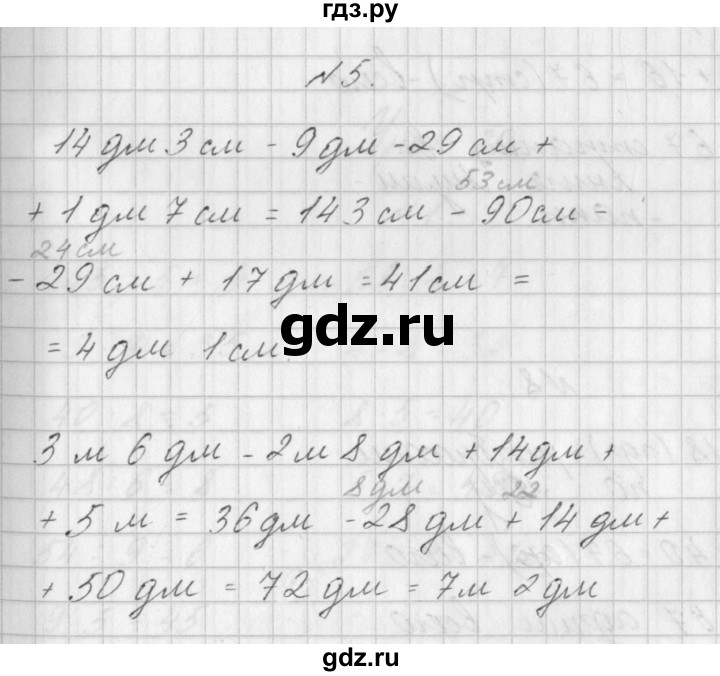 гдз.ру
N5.
14 дм 3 см - 9 дм - 29 см +
53 см
+ 1 дм 7 см = 143 см - 90 см =
24 см
- 29 см + 17 дм = 41 см =
= 4 дм 1 см.
gdz.ru
N8
3 м 6 дм - 2 м 8 дм + 14 дм +
8 дм 22
+ 5 м = 36 дм - 28 дм + 14 дм +
+ 50 дм = 72 дм = 7 м 2 дм
gdz.ru